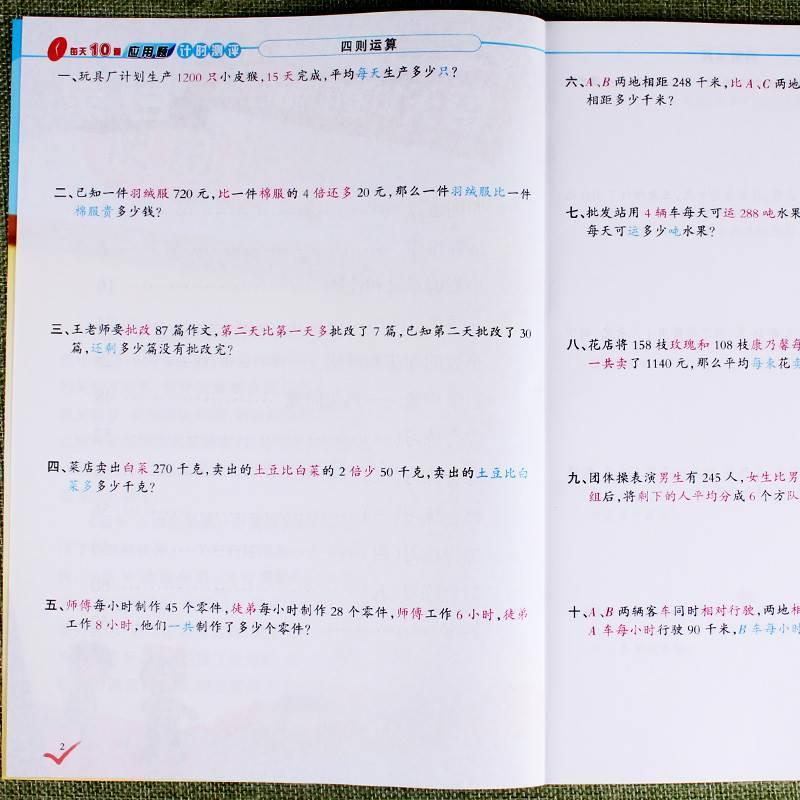 每天10道 应用题 计时测评
四则运算
一、玩具厂计划生产1200只小皮猴,15天完成,平均每天生产多少只?
二、已知一件羽绒服720元,比一件棉服的4倍还多20元,那么一件羽绒服比一件
棉服贵多少钱?
三、王老师要批改87篇作文,第二天比第一天多批改了7篇,已知第二天批改了30
篇,还剩多少篇没有批改完?
四、菜店卖出白菜270千克,卖出的土豆比白菜的2倍少50千克,卖出的土豆比白
菜多多少千克?
五、师傅每小时制作45个零件,徒弟每小时制作28个零件,师傅工作6小时,徒弟
工作8小时,他们一共制作了多少个零件?
2
六、A、B两地相距248千米,比A、C两地
相距多少千米?
七、批发站用4辆车每天可运288吨水果
每天可运多少吨水果?
八、花店将158枝玫瑰和108枝康乃馨每
一共卖了1140元,那么平均每束花卖
九、团体操表演男生有245人,女生比男
组后,将剩下的人平均分成6个方队
十、A、B两辆客车同时相对行驶,两地相
A车每小时行驶90千米,B车每小时